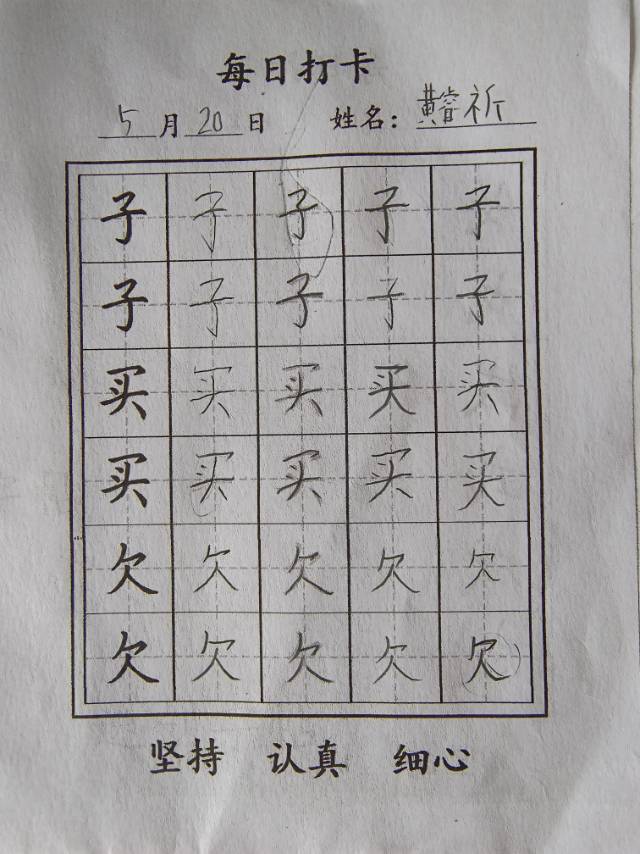 每日打卡
5月20日 姓名：黄睿祈
子 子 子 子 子
子 子 子 子 子
买 买 买 买 买
买 买 买 买 买
欠 欠 欠 欠 欠
欠 欠 欠 欠 欠
坚持 认真 细心